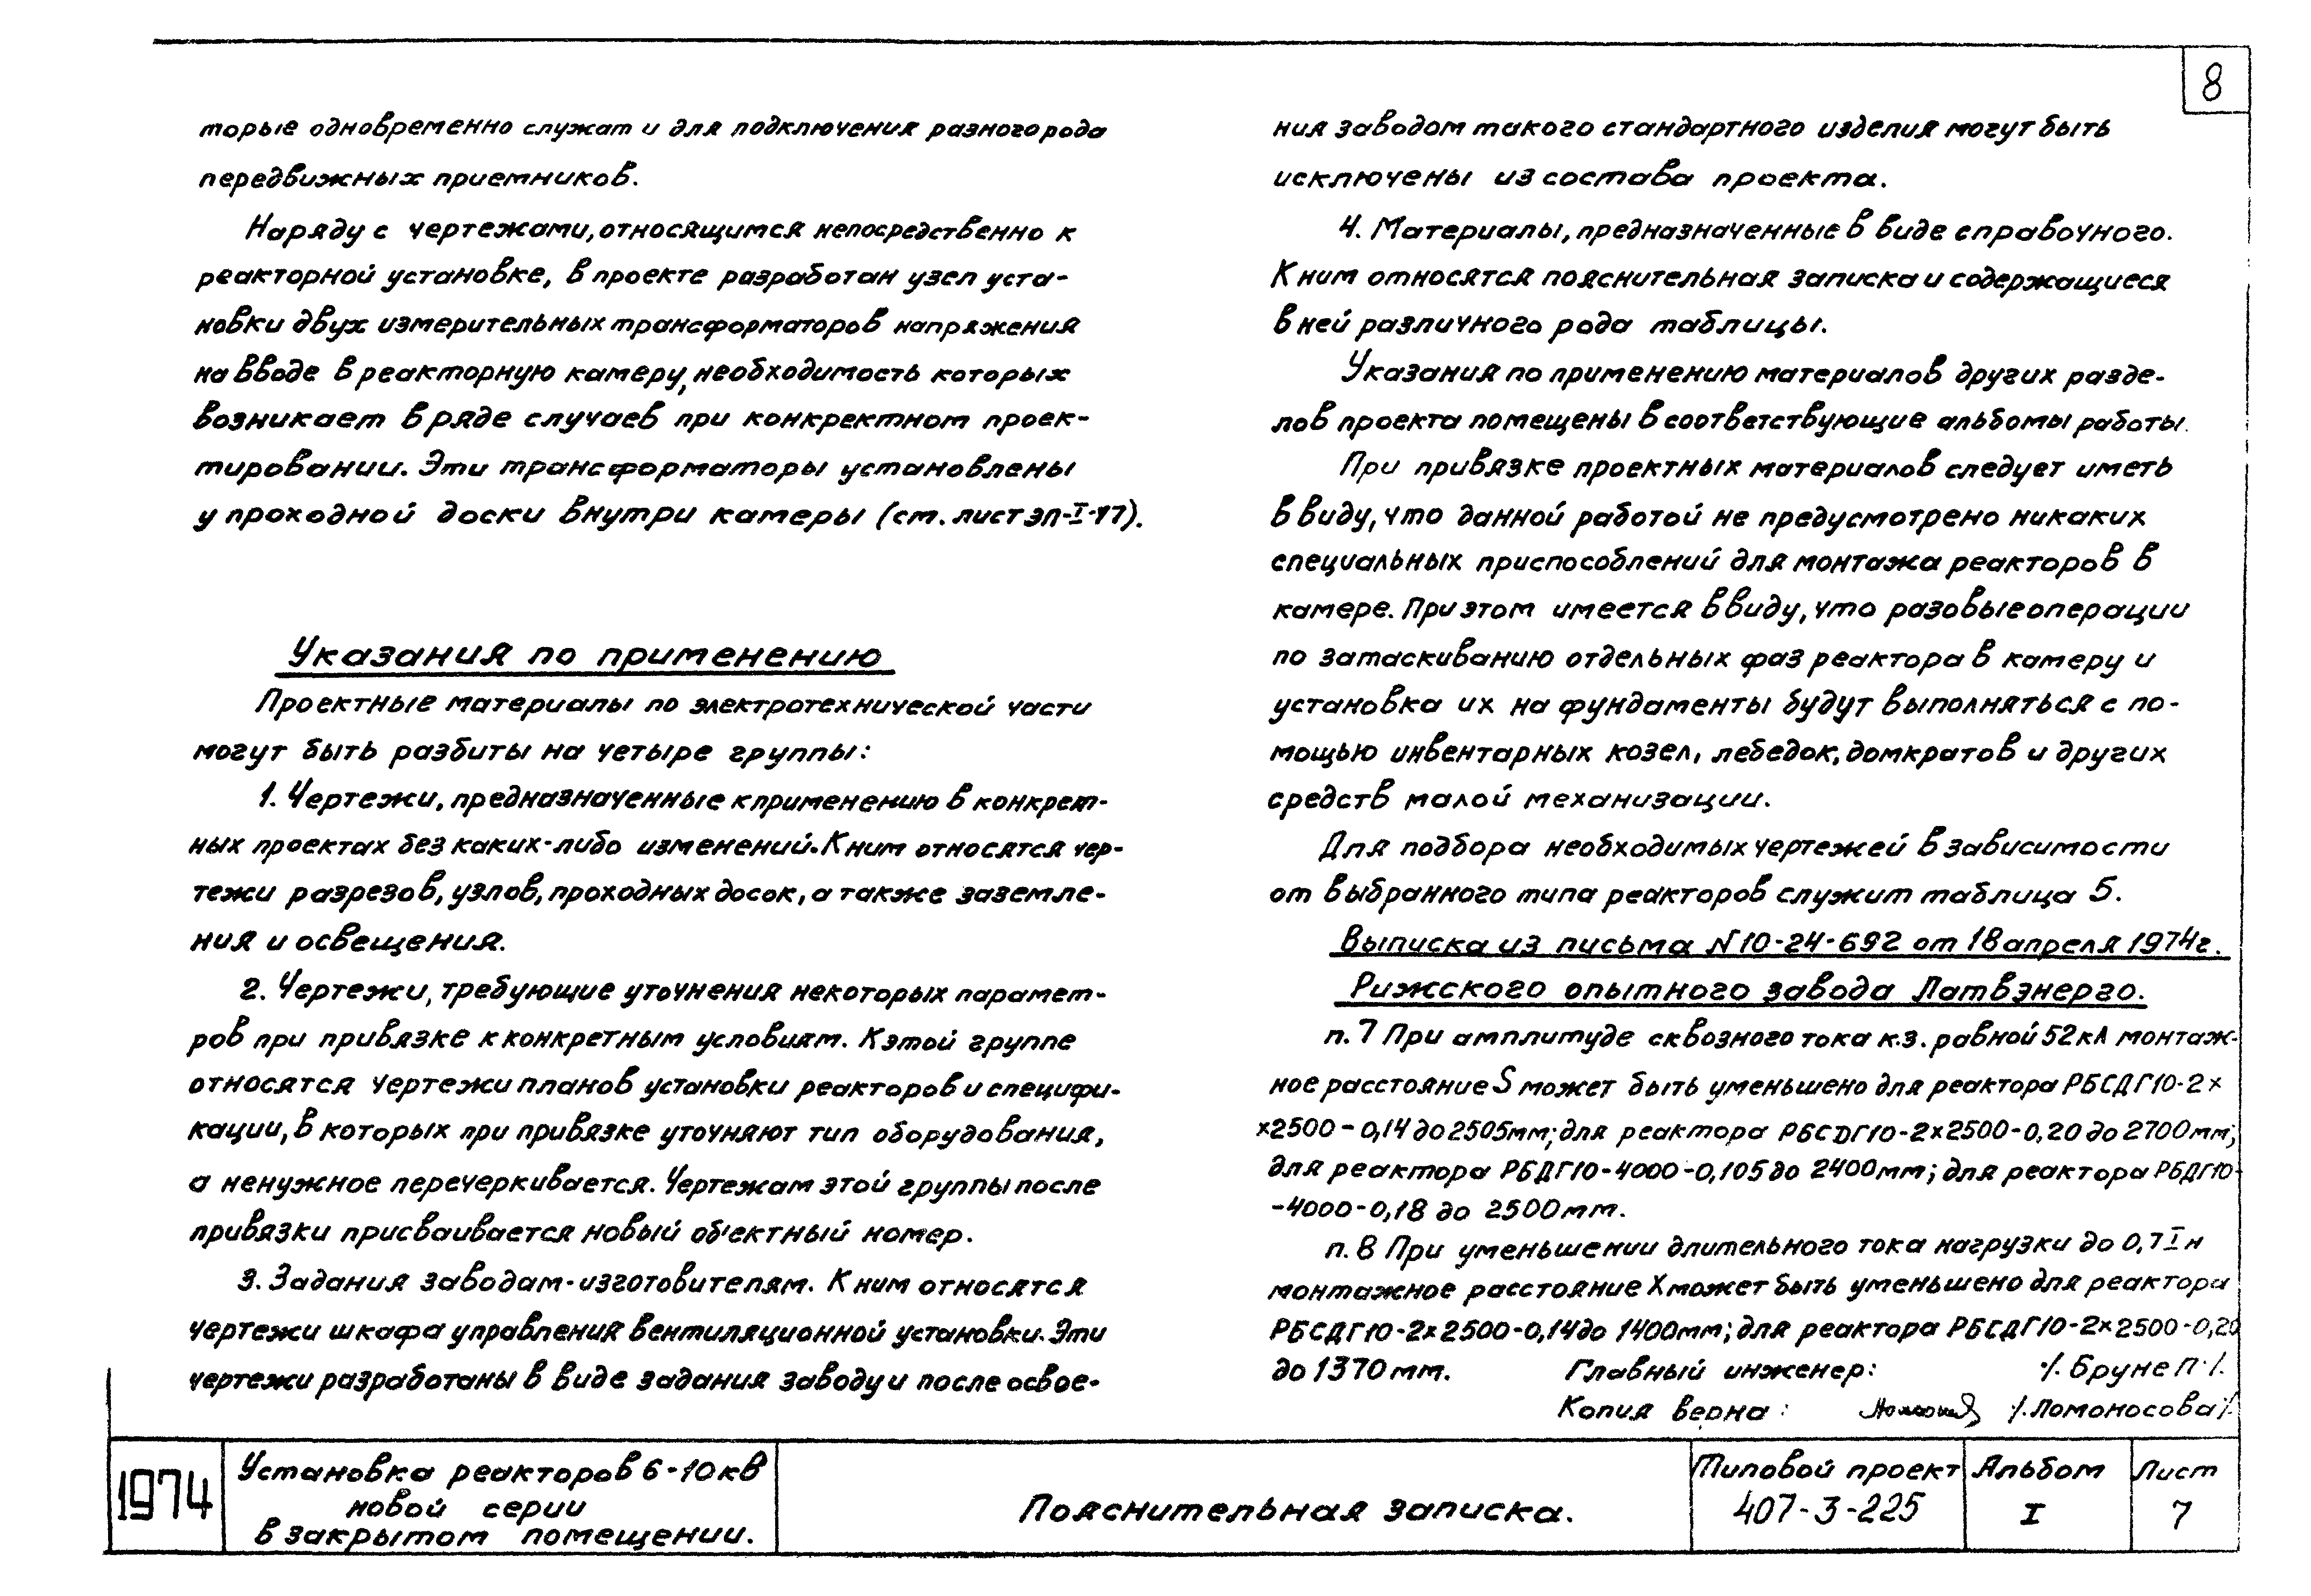 8
торые одновременно служат и для подключения разного рода
передвижных приемников.
Наряду с чертежами, относящимися непосредственно к
реакторной установке, в проекте разработан узел уста-
новки двух измерительных трансформаторов напряжения
на вводе в реакторную камеру, необходимость которых
возникает в ряде случаев при конкретном проек-
тировании. Эти трансформаторы установлены
у проходной доски внутри камеры (ст. лист ЭП-I-17).
Указания по применению
Проектные материалы по электротехнической части
могут быть разбиты на четыре группы:
1. Чертежи, предназначенные к применению в конкрет-
ных проектах без каких-либо изменений. К ним относятся чер-
тежи разрезов, узлов, проходных досок, а также заземле-
ния и освещения.
2. Чертежи, требующие уточнения некоторых парамет-
ров при привязке к конкретным условиям. К этой группе
относятся чертежи планов установки реакторов и специфи-
кации, в которых при привязке уточняют тип оборудования,
а ненужное перечеркивается. Чертежам этой группы после
привязки присваивается новый об'ектный номер.
3. Задания заводам-изготовителям. К ним относятся
чертежи шкафа управления вентиляционной установки. Эти
чертежи разработаны в виде задания заводу и после освое-
ния заводом такого стандартного изделия могут быть
исключены из состава проекта.
4. Материалы, предназначенные в виде справочного.
К ним относятся пояснительная записка и содержащиеся
в ней различного рода таблицы.
Указания по применению материалов других разде-
лов проекта помещены в соответствующие альбомы работы.
При привязке проектных материалов следует иметь
в виду, что данной работой не предусмотрено никаких
специальных приспособлений для монтажа реакторов в
камере. При этом имеется в виду, что разовые операции
по затаскиванию отдельных фаз реактора в камеру и
установка их на фундаменты будут выполняться с по-
мощью инвентарных козел, лебедок, домкратов и других
средств малой механизации.
Для подбора необходимых чертежей в зависимости
от выбранного типа реакторов служит таблица 5.
Выписка из письма N10-24-692 от 18 апреля 1974г.
Рижского опытного завода Латвэнерго.
п. 7 При амплитуде сквозного тока к.з. равной 52кА монтаж-
ное расстояние S может быть уменьшено для реактора РБСДГ10-2×
×2500-0,14 до 2505мм; для реактора РБСDГ10-2×2500-0,20 до 2700мм;
для реактора РБДГ10-4000-0,105 до 2400мм; для реактора РБДГ10-
-4000-0,18 до 2500мм.
п. 8 При уменьшении длительного тока нагрузки до 0,7Iн
монтажное расстояние X может быть уменьшено для реактора
РБСДГ10-2×2500-0,14 до 1400мм; для реактора РБСДГ10-2×2500-0,20
до 1370мм. Главный инженер: ./. Бруне П./.
Копия верна: ./.Ломоносова/.
1974
Установка реакторов 6-10кВ
новой серии
в закрытом помещении.
Пояснительная записка.
Типовой проект
407-3-225
Альбом
I
Лист
7